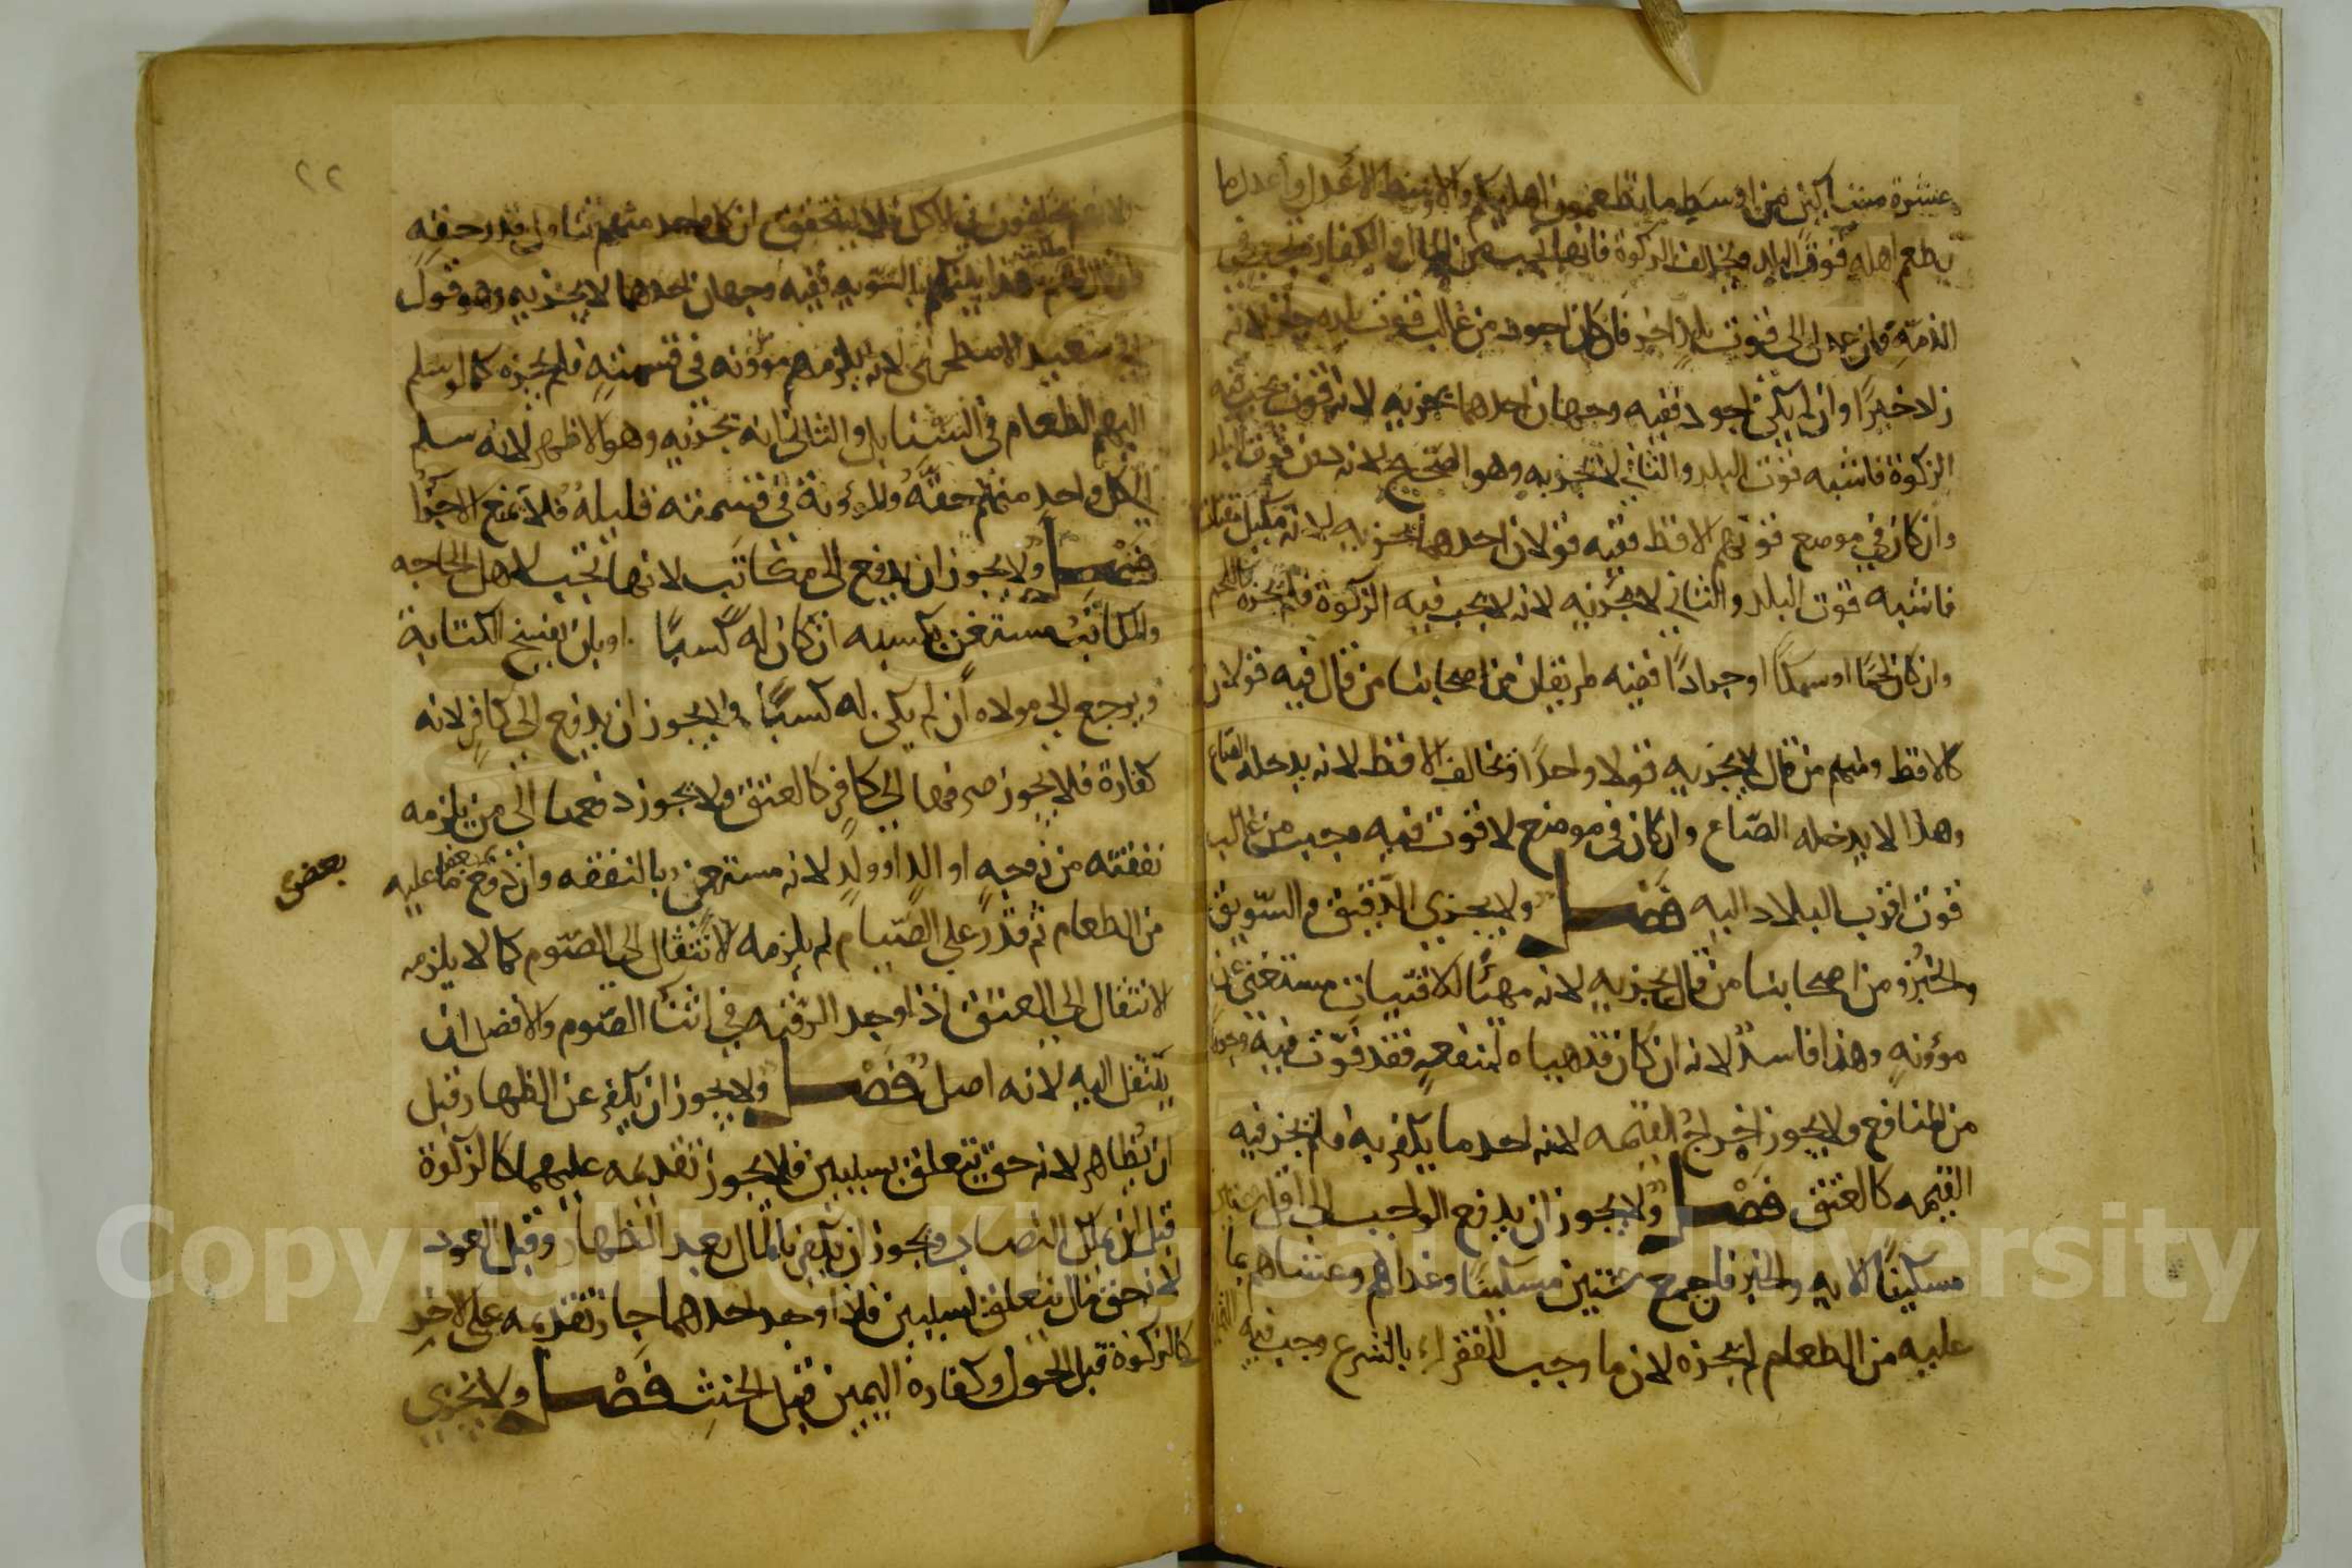 عشرة مساكين من اوسط ما تطعمون اهليكم والاوسط الاعدل واعدل ما
يطعم اهله قوت البلد ويخالف الزكوة فانها تجب من المال والكفارة تجب في
الذمة فان عدل الى قوت بلد اخر فان كان اجود من غالب قوت بلده جاز لانه
زاد خيرا وان لم يكن اجود ففيه وجهان احدهما يجزيه لانه قوت تجب فيه
الزكوة فاشبه قوت البلد والثاني لا يجزيه وهو الصحيح لانه دون قوت البلد
وان كان في موضع قوتهم الاقط ففيه قولان احدهما يجزيه لانه مكيل مقتات
فاشبه قوت البلد والثاني لا يجزيه لانه لا يجب فيه الزكوة فلم يجزه كاللحم
وان كان لحما او سمكا او جرادا ففيه طريقان من اصحابنا من قال فيه قولان
كالاقط ومنهم من قال لا يجزيه قولا واحدا وتخالف الاقط لانه يدخله الصاع
وهذا لا يدخله الصاع وان كان في موضع لا قوت فيه وجب من غالب
قوت اقرب البلاد اليه فصل ولا يجزي الدقيق والسويق
والخبز ومن اصحابنا من قال يجزيه لانه مهيا للاقتيات مستغنى عن
مؤونه وهذا فاسد لانه ان كان قد هياه لمنفعه فقد فوت فيه وجوها
من المنافع ولا يجوز اخراج القيمه لانه احد ما يكفر به فلم يجز فيه
القيمه كالعتق فصل ولا يجوز ان يدفع الواجب الى اقل من ستين
مسكينا للايه والخبر فان جمع ستين مسكينا وغداهم وعشاهم بما
عليه من الطعام لم يجزه لان ما وجب للفقراء بالشرع وجب فيه
لانهم يختلفون في الاكل فلا يتحقق ان كل واحد منهم تناول قدر حقه
هذا بينكم بالسويه ففيه وجهان احدهما لا يجزيه وهو قول
ابي سعيد الاصطخري لانه يلزمهم مؤونه في قسمته فلم يجزه كما لو سلم
اليهم الطعام في السنابل والثاني انه يجزيه وهو الاظهر لانه سلم
الى كل واحد منهم حقه والمؤونة في قسمته قليلة فلا تمنع الاجزا
فصل ولا يجوز ان يدفع الى مكاتب لانها تجب لاهل الحاجه
والمكاتب مستغن بكسبه ان كان له كسبا او بان يفسخ الكتابة
ويرجع الى مولاه ان لم يكن له كسبا ولا يجوز ان يدفع الى كافر لانه
كفارة فلا يجوز صرفها الى كافر كالعتق ولا يجوز دفعها الى من يلزمه
نفقته من زوجه او والد او ولد لانه مستغن بالنفقه وان دفع بعض ما عليه
بعض
من الطعام ثم قدر على الصيام لم يلزمه الانتقال الى الصوم كما لا يلزمه
الانتقال الى العتق اذا وجد الرقبه في اثنا الصوم والافضل ان
ينتقل اليه لانه اصل فصل ولا يجوز ان يكفر عن الظهار قبل
ان يظاهر لانه حق يتعلق بسببين فلا يجوز تقديمه عليهما كالزكوة
قبل ان يملك النصاب ويجوز ان يكفر بالمال بعد الظهار وقبل العود
لانه حق مال يتعلق بسببين فاذا وجد احدهما جاز تقديمه على الاخر
كالزكوة قبل الحول وكفارة اليمين قبل الحنث فصل ولا يجزي
٢٢
Copyright © King Saud University